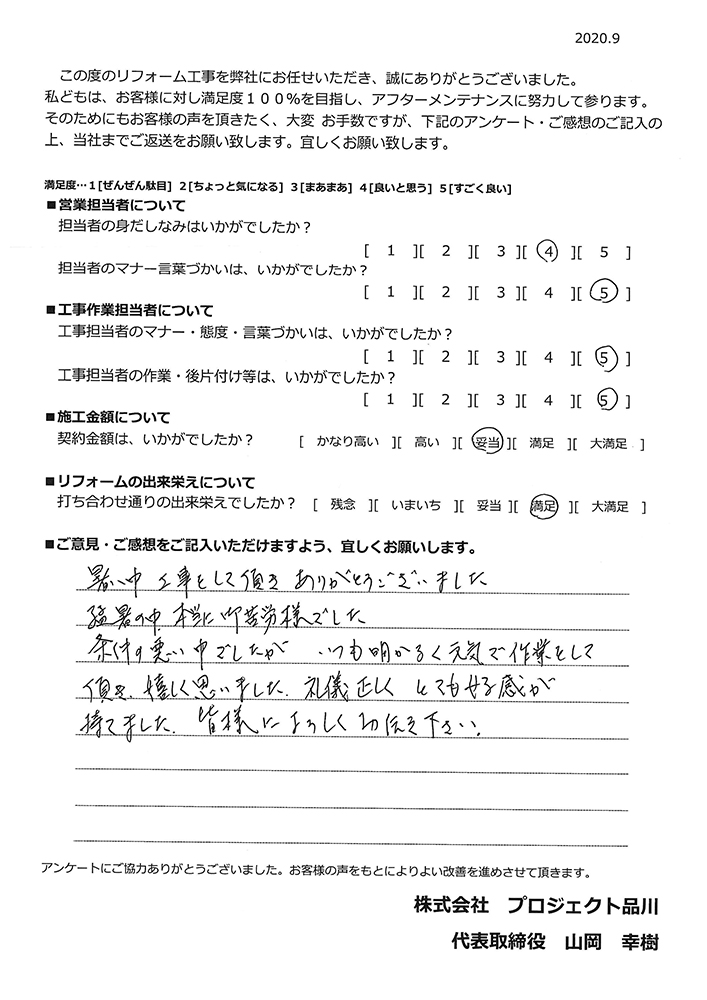 2020.9
この度のリフォーム工事を弊社にお任せいただき、誠にありがとうございました。
私どもは、お客様に対し満足度１００%を目指し、アフターメンテナンスに努力して参ります。
そのためにもお客様の声を頂きたく、大変 お手数ですが、下記のアンケート・ご感想のご記入の
上、当社までご返送をお願い致します。宜しくお願い致します。
満足度…１[ぜんぜん駄目] ２[ちょっと気になる] ３[まあまあ] ４[良いと思う] ５[すごく良い]
■営業担当者について
担当者の身だしなみはいかがでしたか？
[ 1 ][ 2 ][ 3 ][ 4 ][ 5 ]
担当者のマナー言葉づかいは、いかがでしたか？
[ 1 ][ 2 ][ 3 ][ 4 ][ 5 ]
■工事作業担当者について
工事担当者のマナー・態度・言葉づかいは、いかがでしたか？
[ 1 ][ 2 ][ 3 ][ 4 ][ 5 ]
工事担当者の作業・後片付け等は、いかがでしたか？
[ 1 ][ 2 ][ 3 ][ 4 ][ 5 ]
■施工金額について
契約金額は、いかがでしたか？ [ かなり高い ][ 高い ][ 妥当 ][ 満足 ][ 大満足 ]
■リフォームの出来栄えについて
打ち合わせ通りの出来栄えでしたか？ [ 残念 ][ いまいち ][ 妥当 ][ 満足 ][ 大満足 ]
■ご意見・ご感想をご記入いただけますよう、宜しくお願いします。
暑い中 工事をして頂き ありがとうございました
猛暑の中、本当に御苦労様でした
条件の悪い中でしたが いつも明かるく元気で作業をして
頂き、嬉しく思いました。礼儀正しく とても好感が
持てました。皆様によろしくお伝え下さい。
アンケートにご協力ありがとうございました。お客様の声をもとによりよい改善を進めさせて頂きます。
株式会社 プロジェクト品川
代表取締役 山岡 幸樹